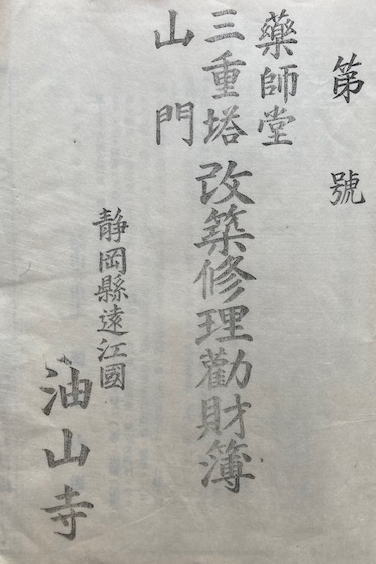 第　號
藥師堂
三重塔
山門
改築修理勸財簿
靜岡縣遠江國
油山寺